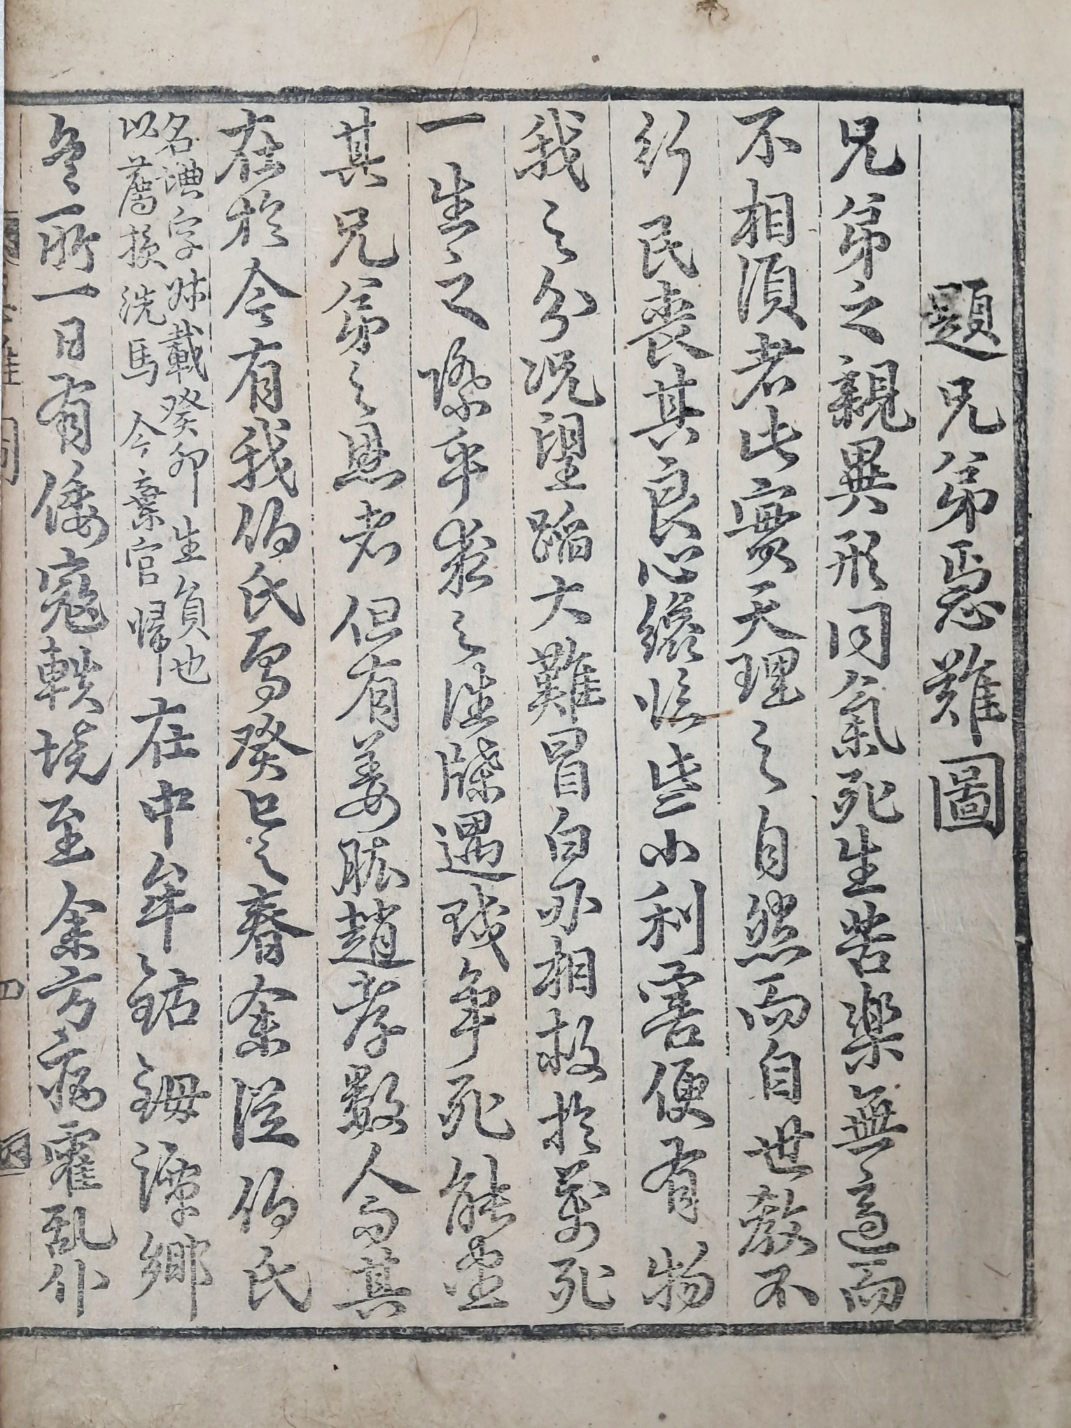 題兄弟急難圖
兄弟之親異形同氣死生苦樂無適而
不相須者此實天理之自然而自世教不
行民喪其良心纔臨些小利害便有物
我之分況望蹈大難冒白刃相救於萬死
一生之際乎求之往牒遇賊爭死能盡
其兄弟之恩者但有姜肱趙孝數人而其
在於今有我伯氏焉癸巳之春余從伯氏
名㙉字叔載癸卯生員也
以薦授洗馬今棄官歸
在中牟鋤鋂潭鄉
冬所一日有倭寇軼境至余方病霍乱仆